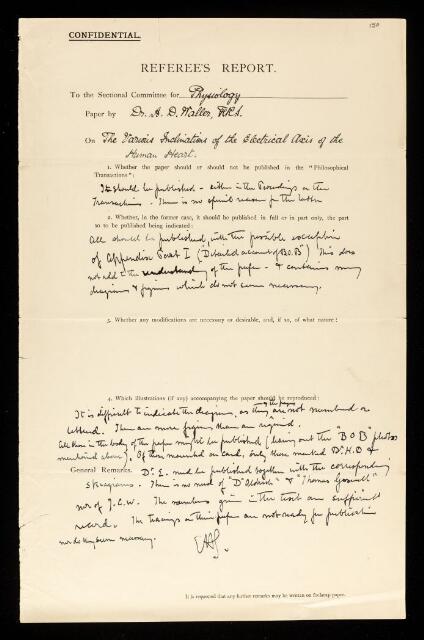 150
CONFIDENTIAL.
REFEREE'S REPORT.
To the Sectional Committee for Physiology
Paper by Dr. A. D. Waller, F.R.S.
On The Various Inclinations of the Electrical Axis of the
Human Heart.
1. Whether the paper should or should not be published in the "Philosophical
Transactions":
It should be published – either in the Proceedings or the
Transactions. There is no special reason for the latter
2. Whether, in the former case, it should be published in full or in part only, the part
so to be published being indicated:
All should be published, with the possible exception
of Appendix Part I ("Detailed account of B.O.B") This does
not add to the understanding of the paper – & contains many
diagrams & figures which do not seem necessary.
3. Whether any modifications are necessary or desirable, and, if so, of what nature:
4. Which illustrations (if any) accompanying the paper should be reproduced:
It is difficult to indicate the diagrams, as they are not numbered or
lettered. There are more figures than are required.
All those in the body of the paper might be published (leaving out the "BOB" photos
mentioned above). Of those mounted on card, only those marked Dr. H.D &
General Remarks. Dr. E. need be published together with the corresponding
skiagrams. There is no need of & "Thomas Goswell"
nor of J.C.W. The numbers given in the text are sufficient
record. The tracings in this paper are not ready for publication
nor do they seem necessary.
It is requested that any further remarks may be written on foolscap paper.